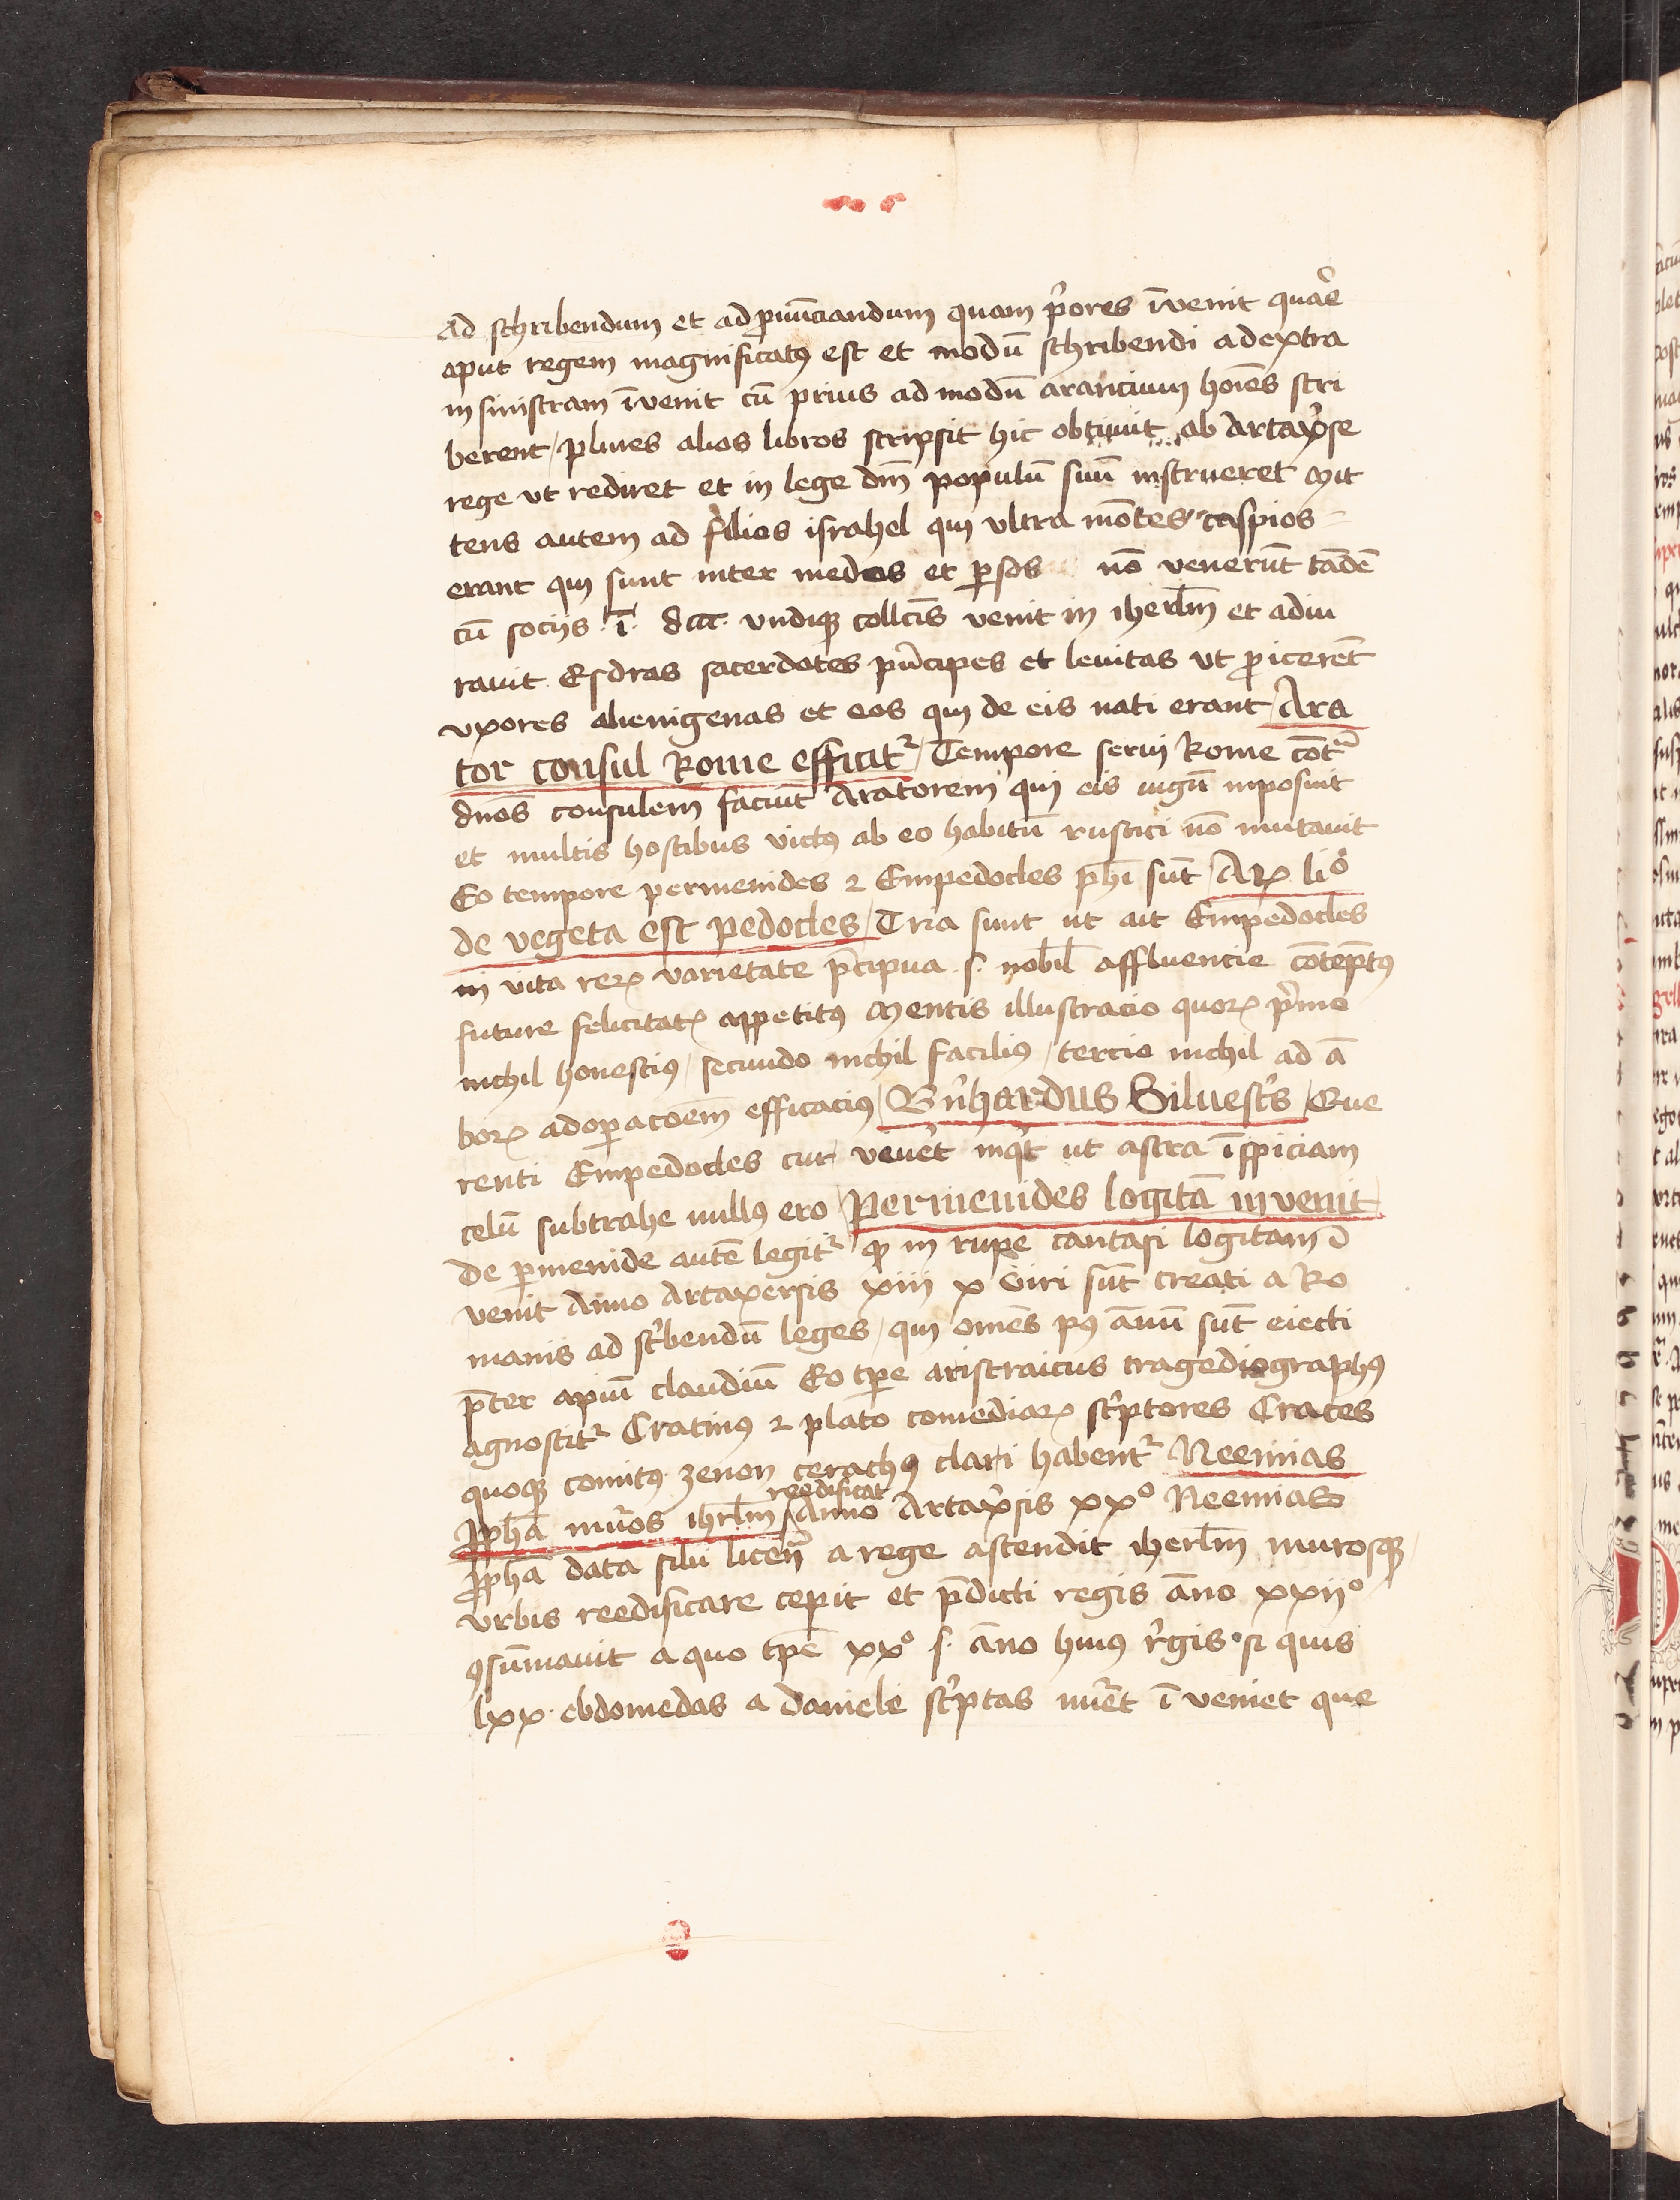 ad schribendum et ad ꝓnūciandum quam p̓ores īvenit qua͛e
aput regem magnificatꝰ est et modū schribendi adextra
in sinistram īvenit cū prius ad modū arancium ho͞ies scri
berent / plures alios libros scripsit hic obtinuit ab artax̓se
rege vt rediret et in lege dn̄i populū suū instrueret Mit
tens autem ad filios israhel qui vltra mōtes caspios
erant qui sunt inter medos et ꝑsas nō venerūt tādē
cū sociis .ī. dcc. vndiqꝫ coll̄cis venit in iherl̄m et adiu
rauit Esdras sacerdotes p̓ncipes et leuitas vt ꝓicerēt
vxores alienigenas et eos qui de eis nati erant / Ara
tor consul Rome efficitᷣ / Tempore serui Rome cōtᷓ
dn̄os consulem faciūt Aratorem qui eis iugū inposuit
et multis hostibus victꝰ ab eo habitū rustici nō mutauit
Eo tempore permenides ⁊ Empedocles ph̄i sūt / Arꝝ lio̊
de vegeta est pedocles / Tria sunt ut ait Empedocles
in vita rerꝝ varietate p̄cipua .s. nobil̄ affluencie cōtēptꝰ
future felicitatꝭ appetitꝰ Mentis illustracio quorꝝ p̓mo
nichil honestiꝰ / secundo nichil faciliꝰ / tercio nichil ad ā
borꝝ adoꝑacōem efficaciꝰ / Bn̓hardus Siluest̓s / Que
renti Empedocles cur veūet inq̓t ut astra īspiciam
celū subtrahe nullꝰ ero / Permenides logicā invenit
de ꝑmenide autē legitᷣ ꝙ in rupe cantasi logicam ī
venit Anno Artaxersis xiii x viri sūt creati a Ro
manis ad sc̓bendū leges / qui om̄es pꝰ annū sūt eiecti
p̄ter apiū claudiū Eo tꝑe aristraicus tragediographꝰ
agnoscitᷣ Cratinꝰ ⁊ plato comediarꝝ sc̓ptores Crates
quoqꝫ comitꝰ zenon cerachꝰ clari habentᷣ Neemias
ꝓph̄a mu̓os ihrl̄m reedificat / Anno Artax̓sis xxº Neemias
ꝓph̄a data sibi licen̄ a rege ascendit iherl̄m murosqꝫ
vrbis reedificare cepit et p̄dicti regis āno xxiiº
ꝯsūmauit a quo tꝑe xxº .s. āno huiꝰ r̓gis si quis
lxx ebdomedas a daniele sc̓ptas nu̓et ī veniet que